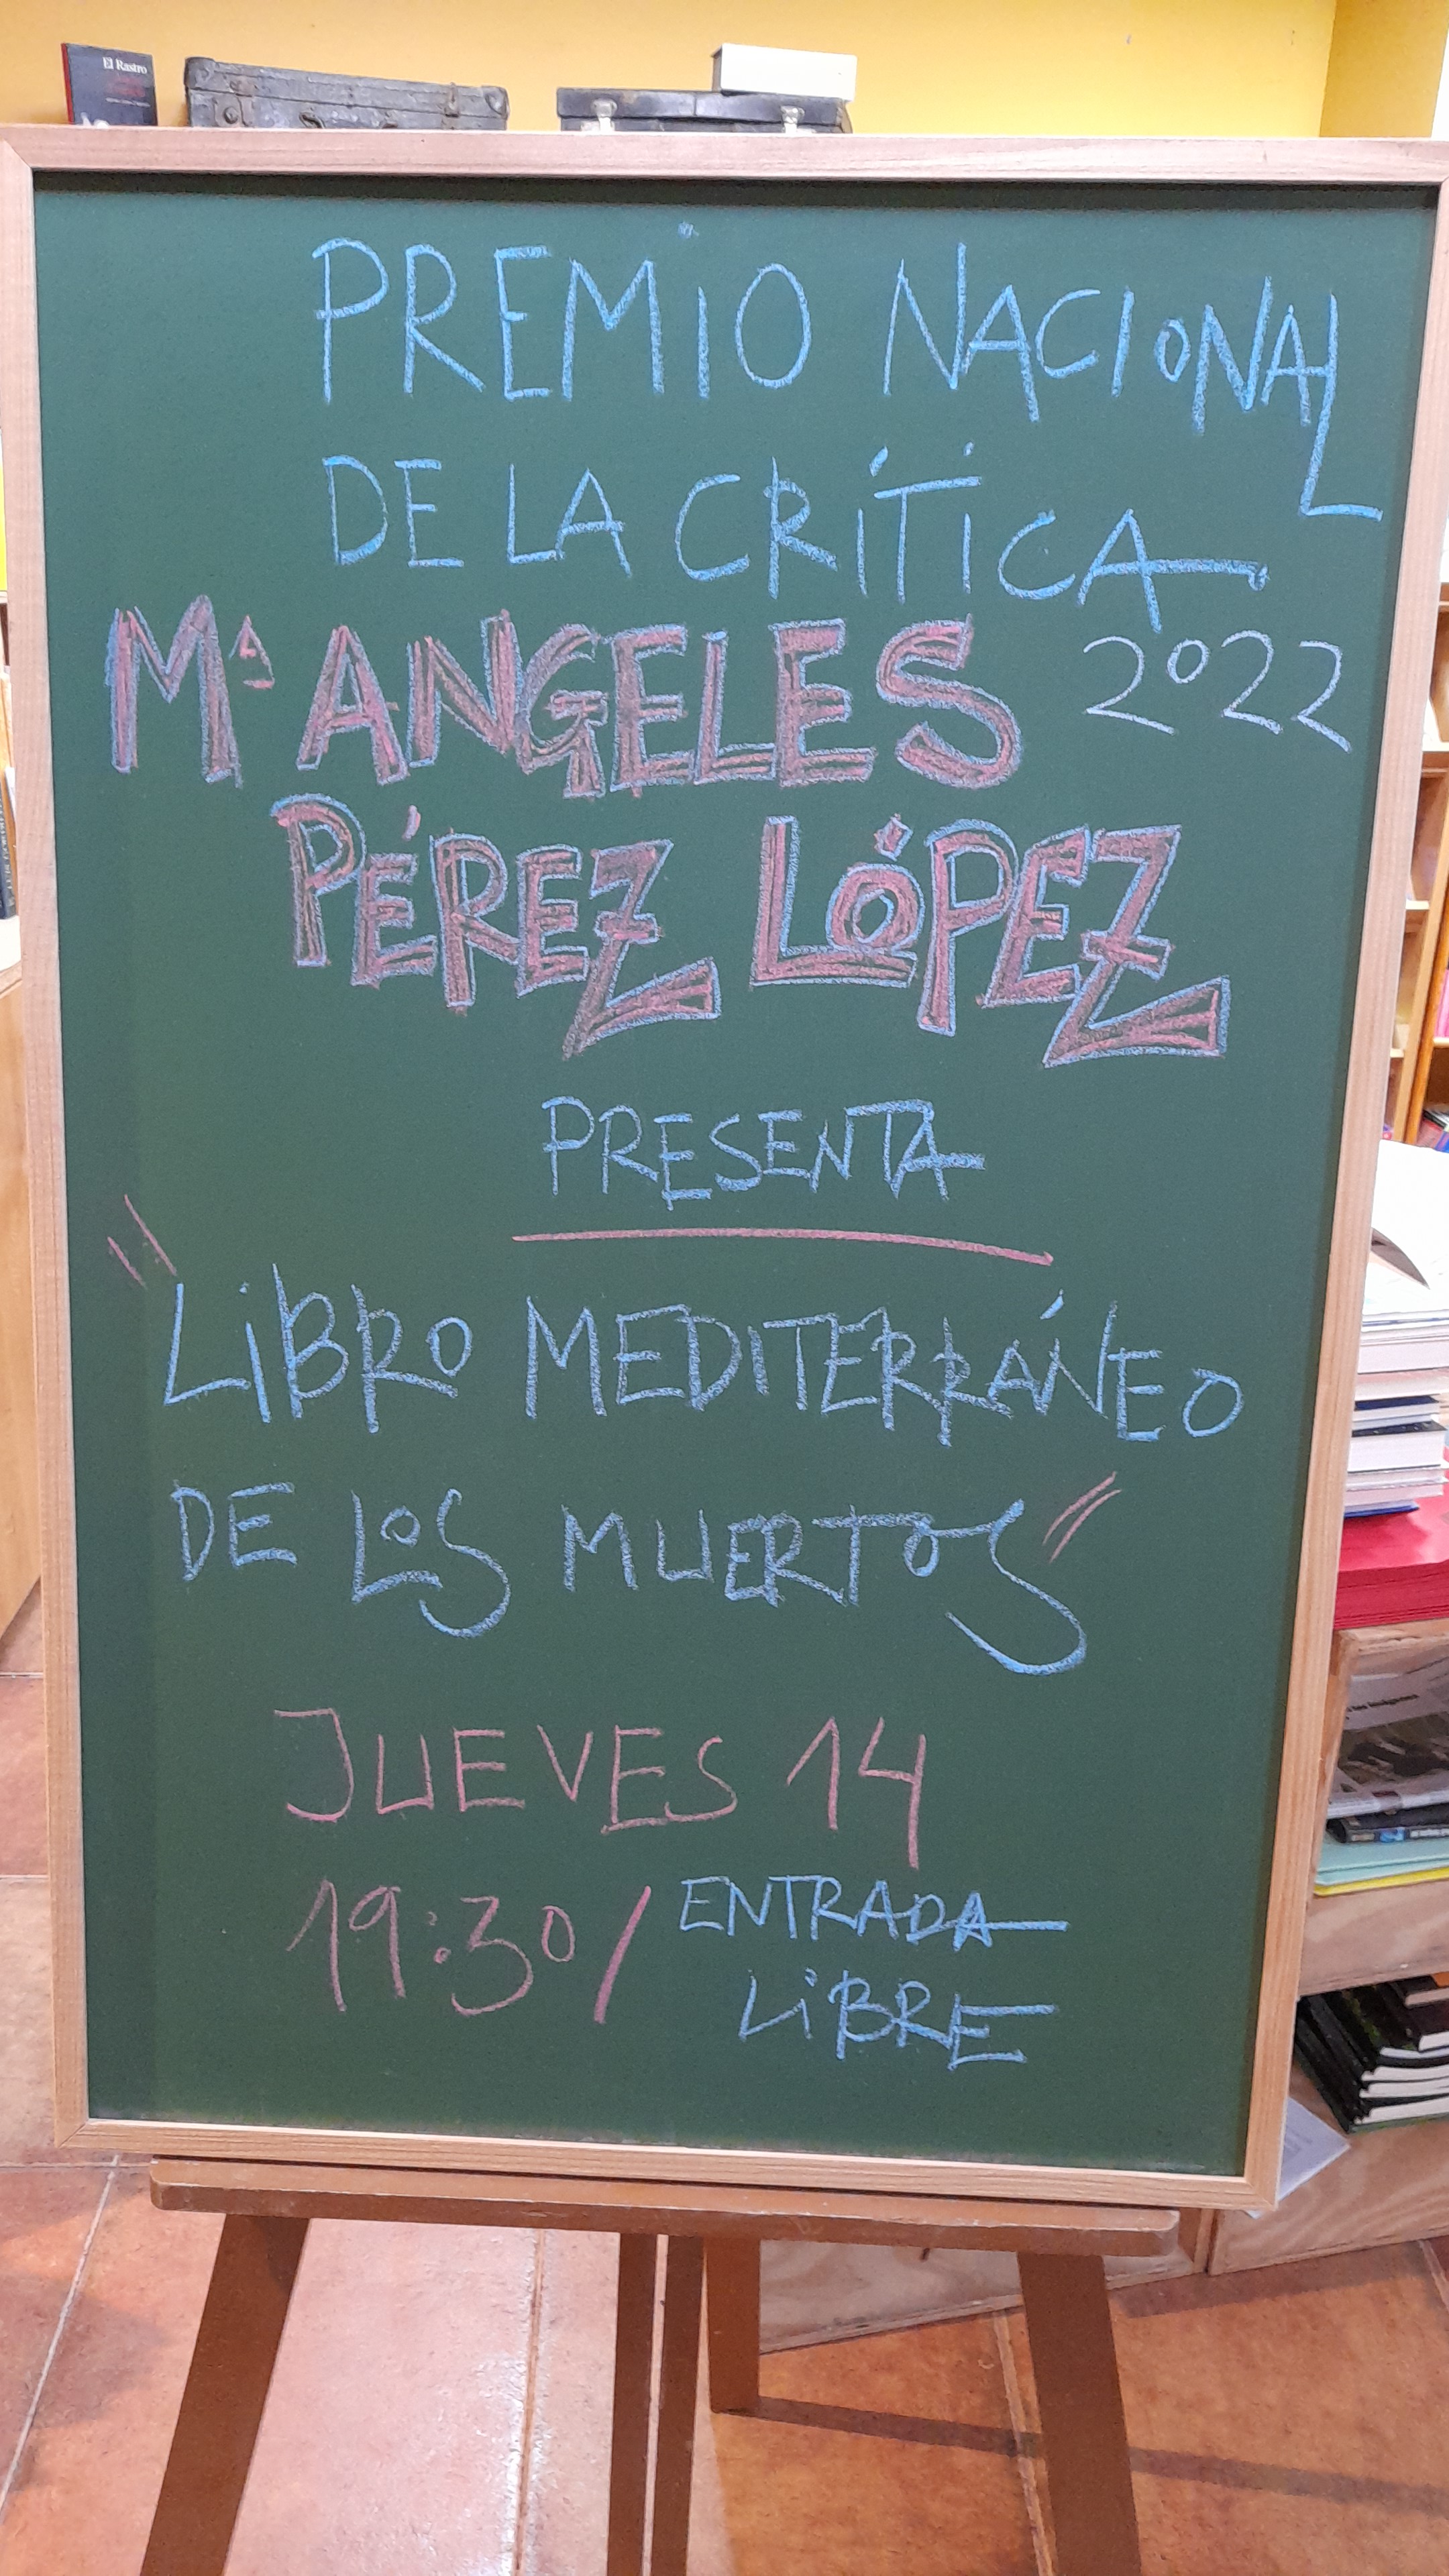 El Rastro
PREMIO NACIONAL
DE LA CRÍTICA
Mª ANGELES 2022
PÉREZ LÓPEZ
PRESENTA
"LIBRO MEDITERRÁNEO
DE LOS MUERTOS"
JUEVES 14
19:30/ ENTRADA
LIBRE